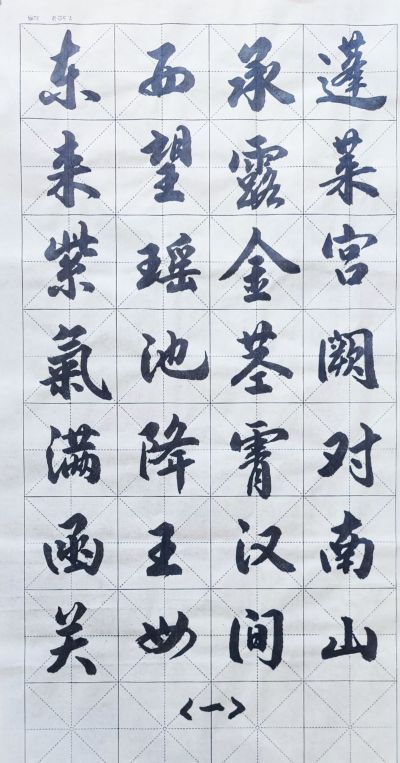 蓬莱宫阙对南山
承露金茎霄汉间
西望瑶池降王母
东来紫氣满函关
<一>